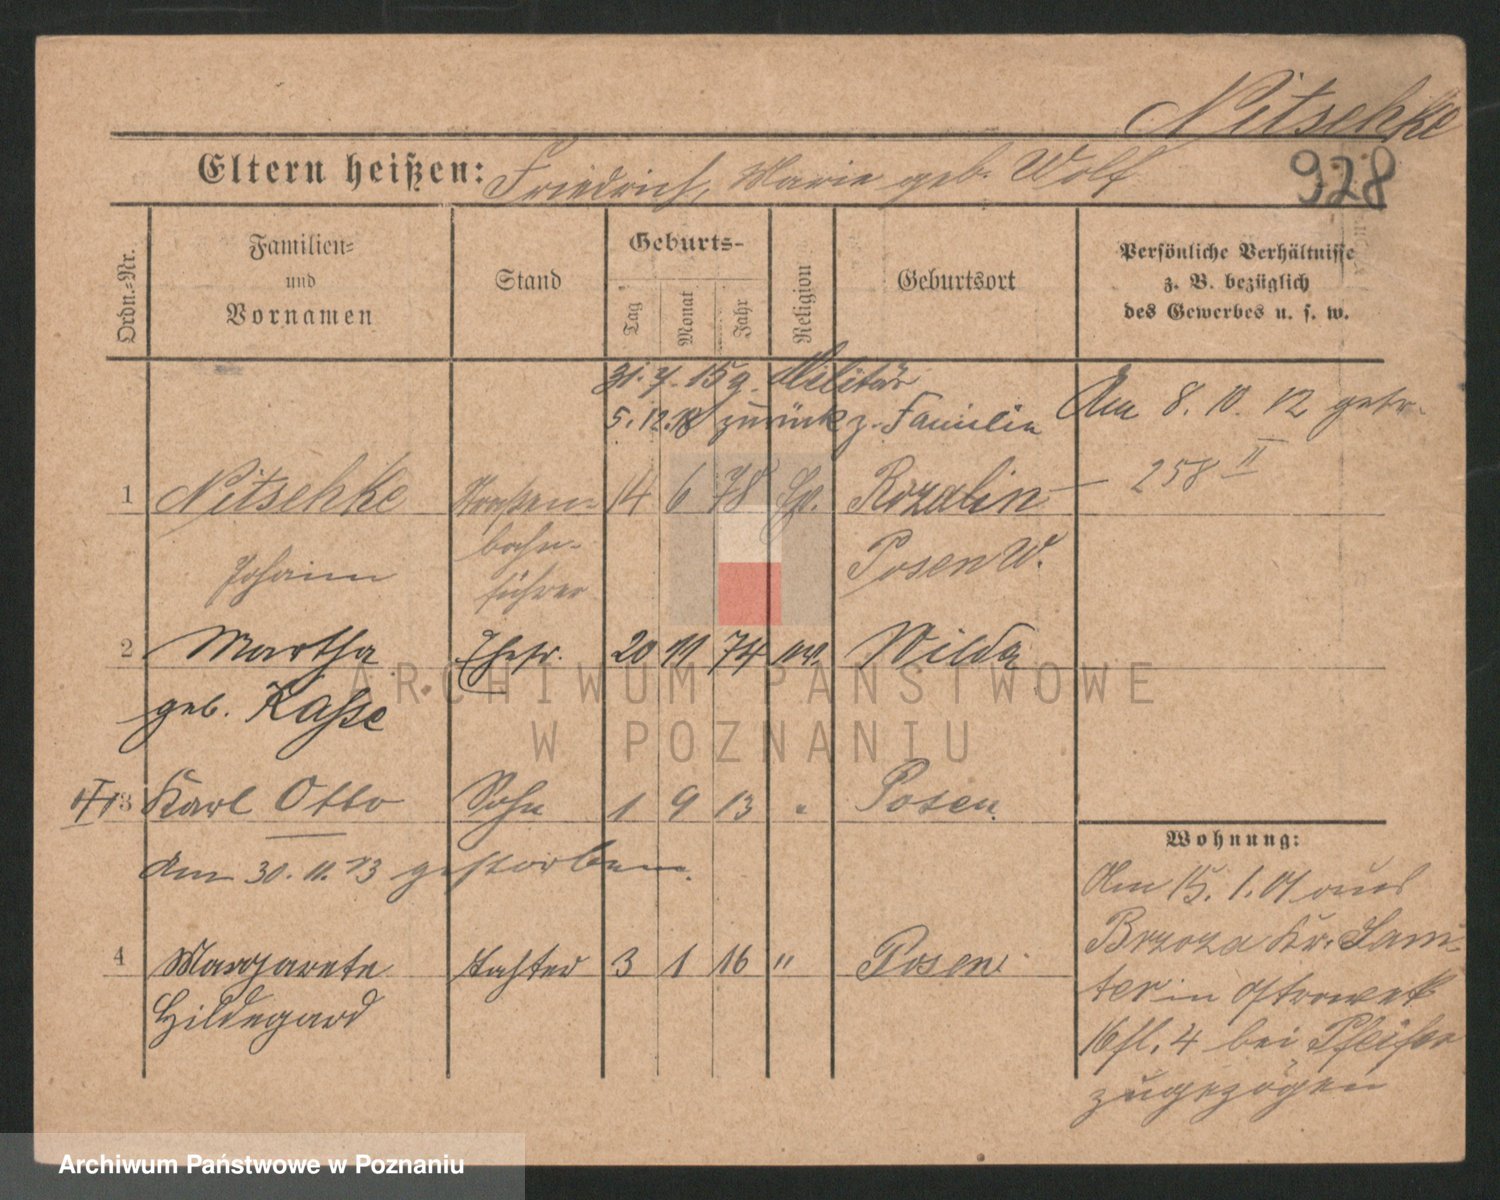 Nitschke
Eltern heißen: Friedrich, Marie geb. Wolf
928
Ordn.-Nr.
Familien-
und
Vornamen
Stand
Geburts-
Tag
Monat
Jahr
Religion
Geburtsort
Persönliche Verhältnisse
z. B. bezüglich
des Gewerbes u. s. w.
31. 7. 15 g. Militär
5. 12. 18 zurück z. Familie
Am 8. 10. 12 getr.
258 II
1 Nitschke Straßen= 14 6 78 Rozalin
Johann bahn- Posen W.
führer
2 Martha Ehefr. 20 11 74 Wilda
geb. Kasse
3 Karl Otto Sohn 1 9 13 " Posen
am 30. 11. 13 gestorben.
4 Margarete Tochter 3 1 16 " Posen
Hildegard
Wohnung:
Am 15. 1. 01 aus
Brzoza Kr. Sam-
ter in Ostrowek
16 fl. 4 bei Pfeifer
zugezogen
ARCHIWUM PAŃSTWOWE
W POZNANIU
Archiwum Państwowe w Poznaniu